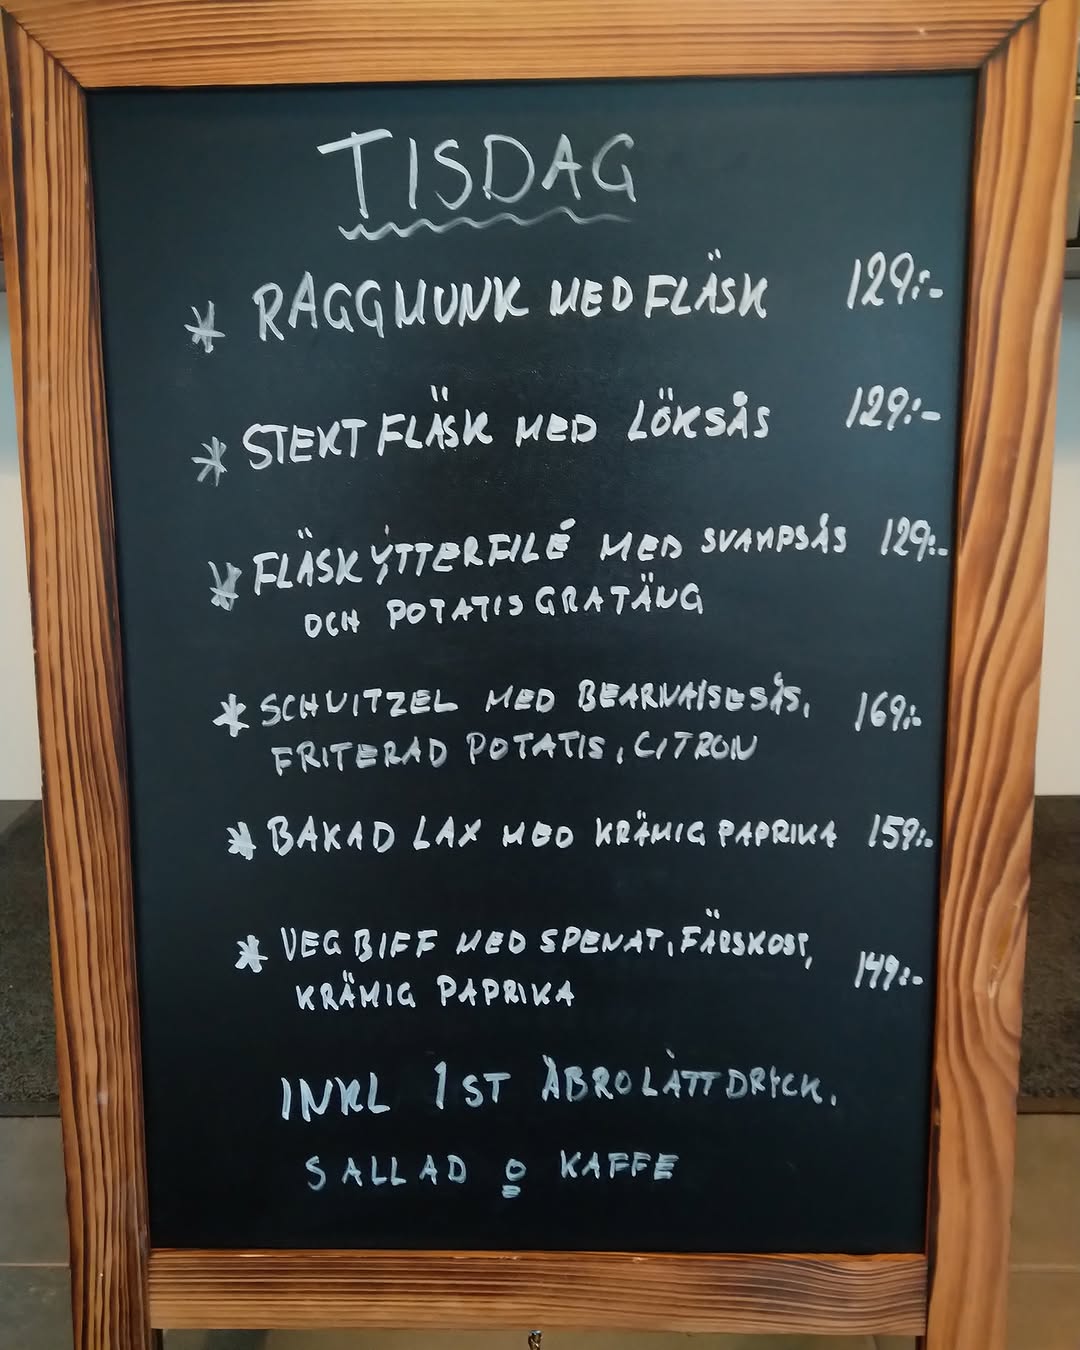 TISDAG
* RAGGMUNK MED FLÄSK 129:-
* STEKT FLÄSK MED LÖKSÅS 129:-
* FLÄSKYTTERFILÉ MED SVAMPSÅS 129:-
OCH POTATISGRATÄNG
* SCHNITZEL MED BEARNAISESÅS, 169:-
FRITERAD POTATIS, CITRON
* BAKAD LAX MED KRÄMIG PAPRIKA 159:-
* VEG BIFF MED SPENAT, FÄRSKOST, 149:-
KRÄMIG PAPRIKA
INKL 1 ST ÅBRO LÄTTDRICK.
SALLAD o KAFFE